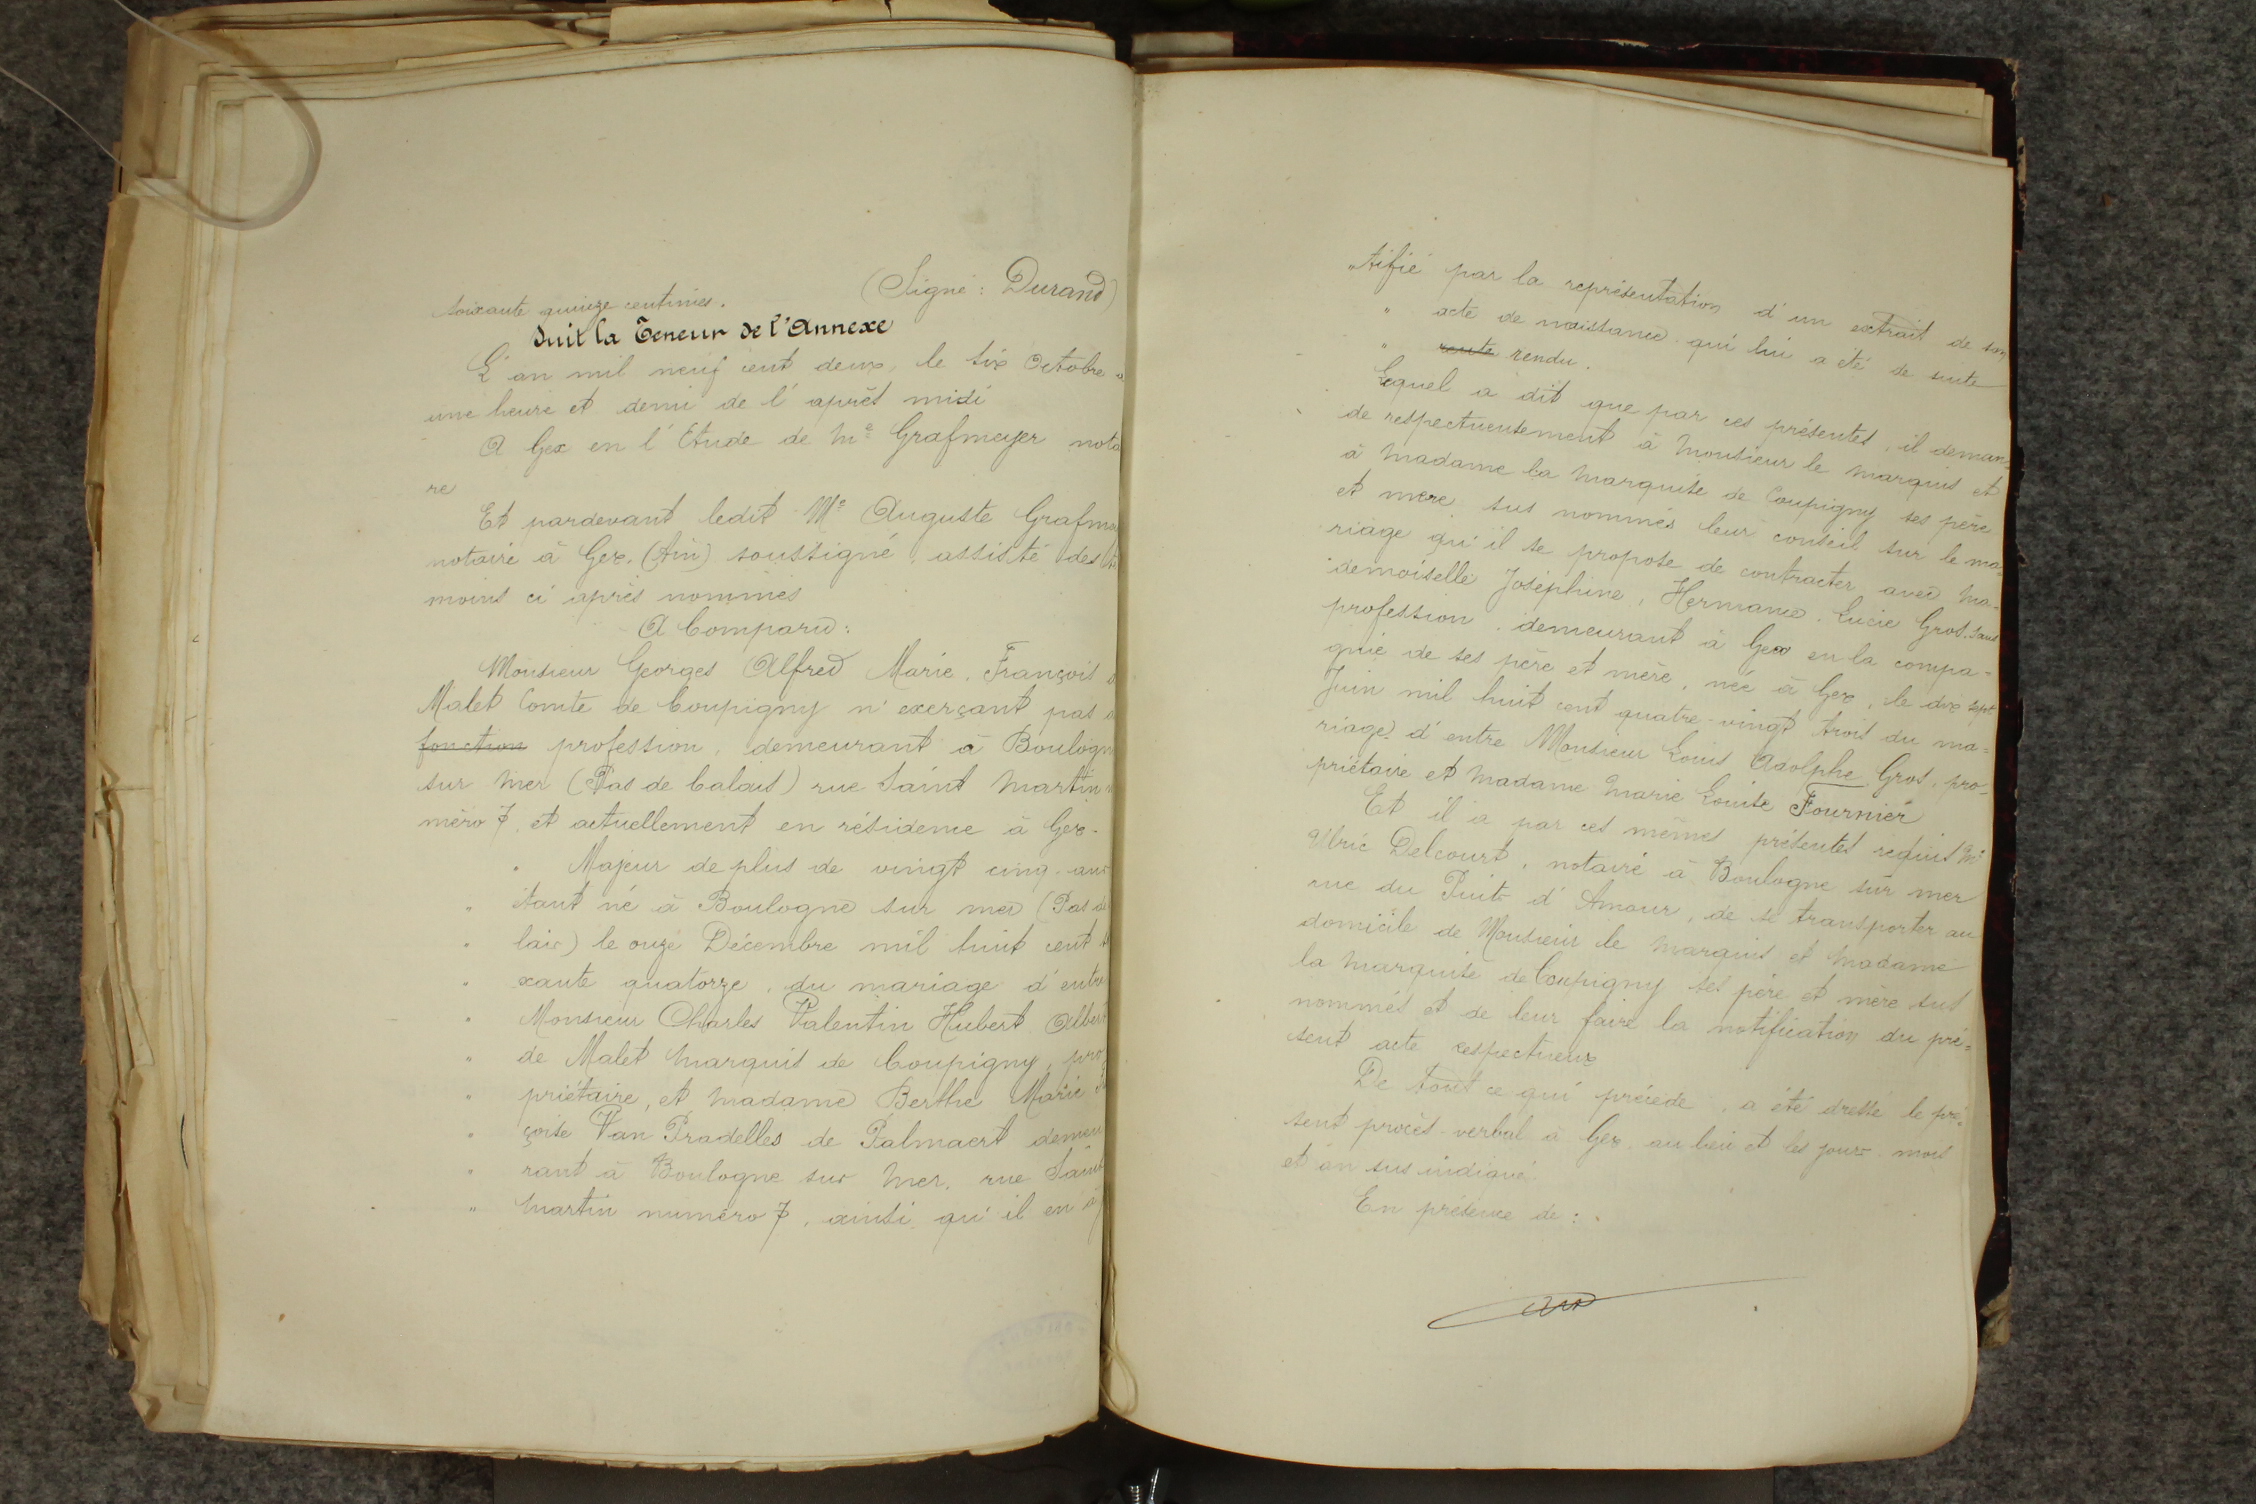 (Signé : Durand)
soixante quinze centimes.
Suit la Teneur de l'Annexe
L'an mil neuf cent deux, le six Octobre à
une heure et demi de l'après midi
A Gex en l'Etude de Me Grafmeyer nota
re
Et pardevant ledit Me Auguste Grafme
notaire à Gex (Ain) soussigné, assisté des té
moins ci après nommés
A Comparu :
Monsieur Georges Alfred Marie, François d
Malet Comte de Coupigny n'exerçant pas
fonction profession, demeurant à Boulogn
sur Mer (Pas de Calais) rue Saint Martin n
méro 7, et actuellement en résidence à Gex.
" Majeur de plus de vingt cinq ans
" étant né à Boulogne sur mer (Pas de
" lais) le onze Décembre mil huit cent s
" xante quatorze, du mariage d'entre
" Monsieur Charles Valentin Hubert Albert
" de Malet Marquis de Coupigny, pro
" priétaire, et Madame Berthe Marie
" çoise Van Pradelles de Palmaert demeu
" rant à Boulogne sur Mer, rue Saint
" Martin numéro 7, ainsi qu'il en a j
" tifié par la représentation d'un extrait de son
" acte de naissance qui lui a été de suite
" reute rendu.
Lequel a dit que par ces présentes, il deman-
de respectueusement à Monsieur le Marquis et
à Madame la Marquise de Coupigny ses père
et mère sus nommés leur conseil sur le ma-
riage qu'il se propose de contracter avec Ma-
demoiselle Joséphine, Hermance, Lucie Gros, sans
profession, demeurant à Gex en la compa-
gnie de ses père et mère, née à Gex, le dix sept
Juin mil huit cent quatre-vingt trois du ma-
riage d'entre Monsieur Louis Adolphe Gros, pro-
priétaire et Madame Marie Louise Fournier
Et il a par ces mêmes présentes requis Me
Ulric Delcourt, notaire à Boulogne sur mer
rue du Puits d'Amour, de se transporter au
domicile de Monsieur le Marquis et Madame
la Marquise de Coupigny ses père et mère sus
nommés et de leur faire la notification du pré-
sent acte respectueux
De tout ce qui précède, a été dressé le pré-
sent procès-verbal à Gex, au lieu et les jour, mois
et an sus indiqué.
En présence de :